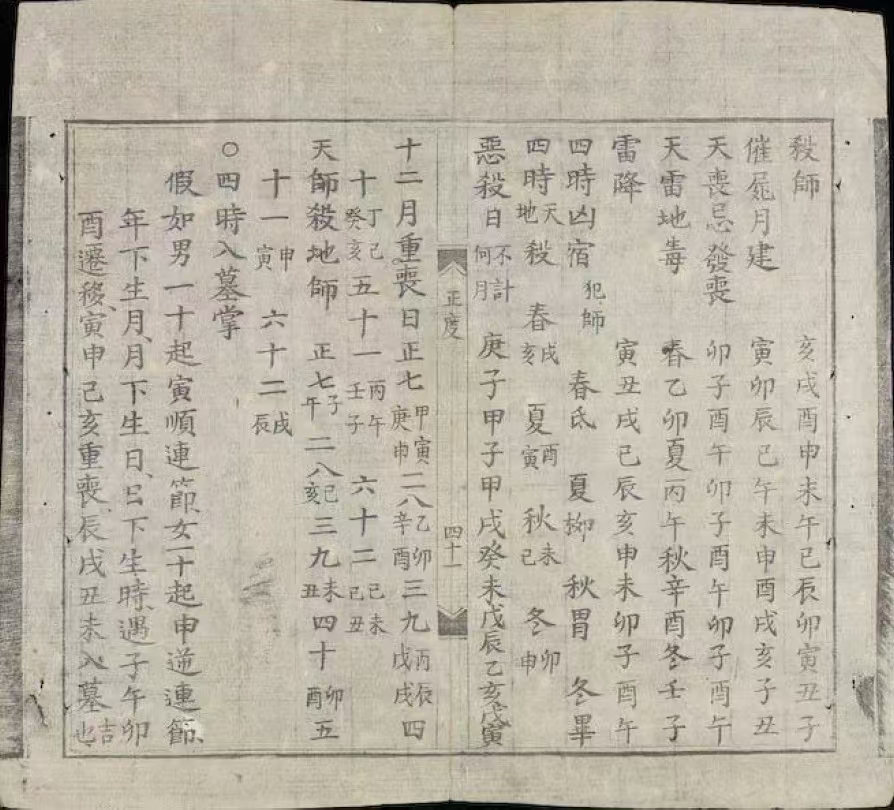 殺師 亥戌酉申未午巳辰卯寅丑子
催屍月建 寅卯辰巳午未申酉戌亥子丑
天喪忌發喪 卯子酉午卯子酉午卯子酉午
天雷地毒 春乙卯夏丙午秋辛酉冬壬子
雷降 寅丑戌巳辰亥申未卯子酉午
四時凶宿 犯師 春氐 夏柳 秋胃 冬畢
四時天地殺 春戌亥 夏酉寅 秋未巳 冬卯申
惡殺日不計何月 庚子甲子甲戌癸未戊辰乙亥戊寅
正度 四十一
十二月重喪日正七甲寅庚申二八乙卯辛酉三九丙辰戊戌四
十丁巳癸亥五十一丙午壬子六十二己未己丑
天師殺地師 正七子午二八巳亥三九未丑四十卯酉五
十一申寅 六十二戌辰
○四時入墓掌
假如男一十起寅順連節女一十起申逆連節
年下生月月下生日日下生時遇子午卯
酉遷移寅申己亥重喪辰戌丑未入墓吉也